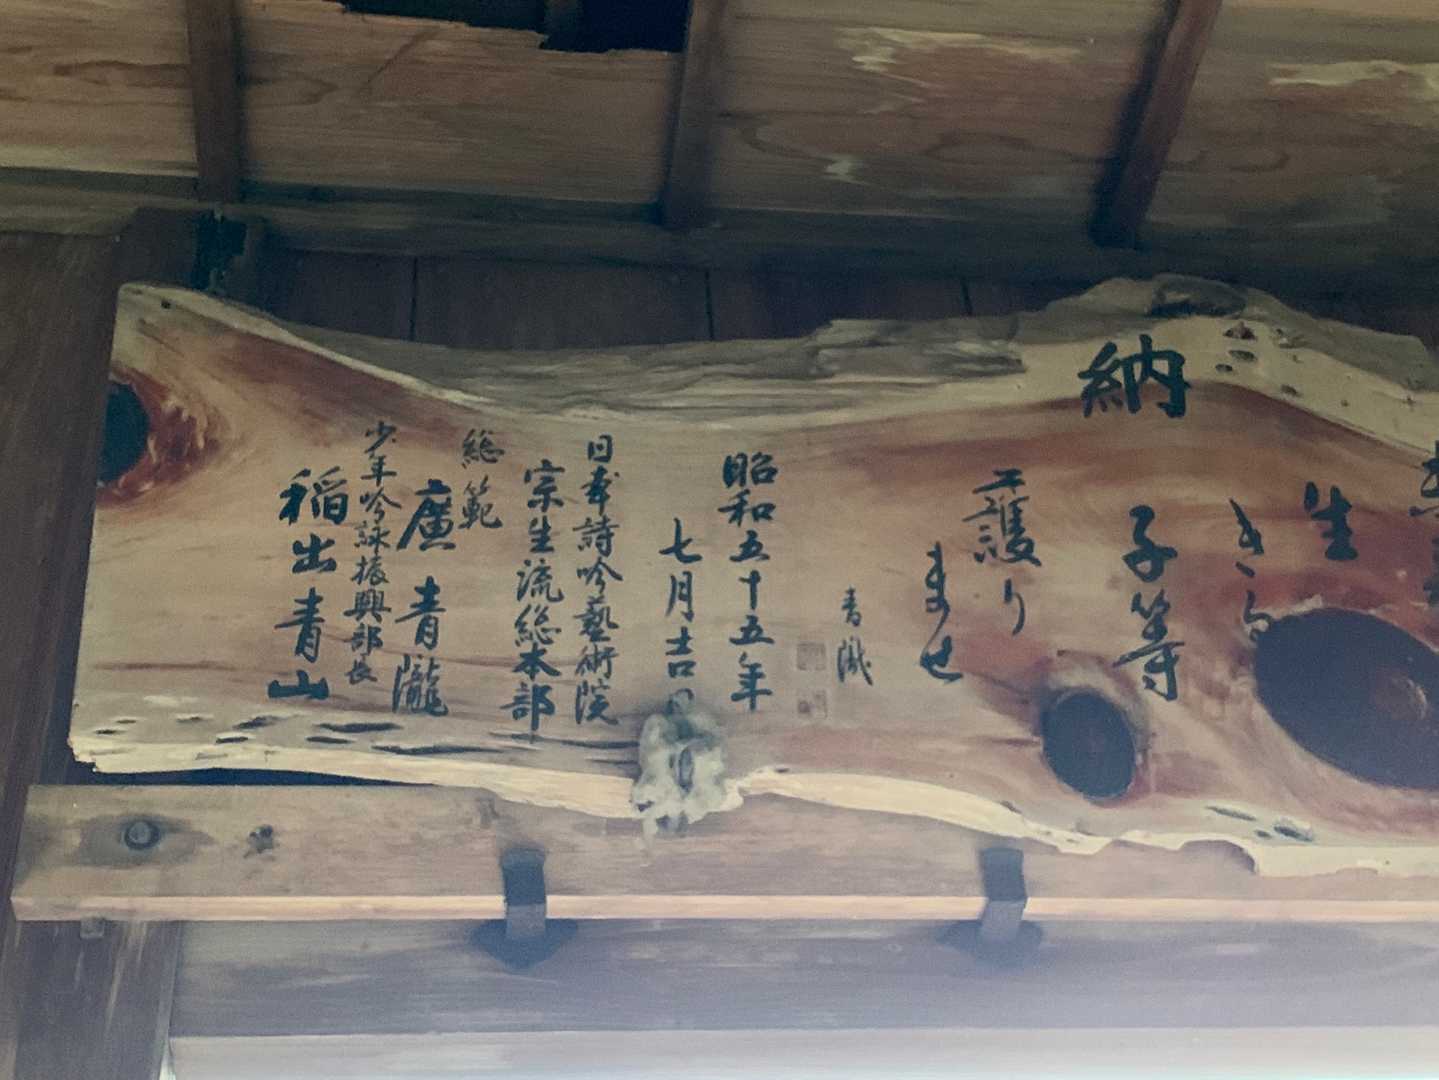 納
生
きる
子等
護り
ませ
青瀧
昭和五十五年
七月吉日
日本詩吟藝術院
宗生流総本部
総範
廣青瀧
少年吟詠振興部長
稲出青山